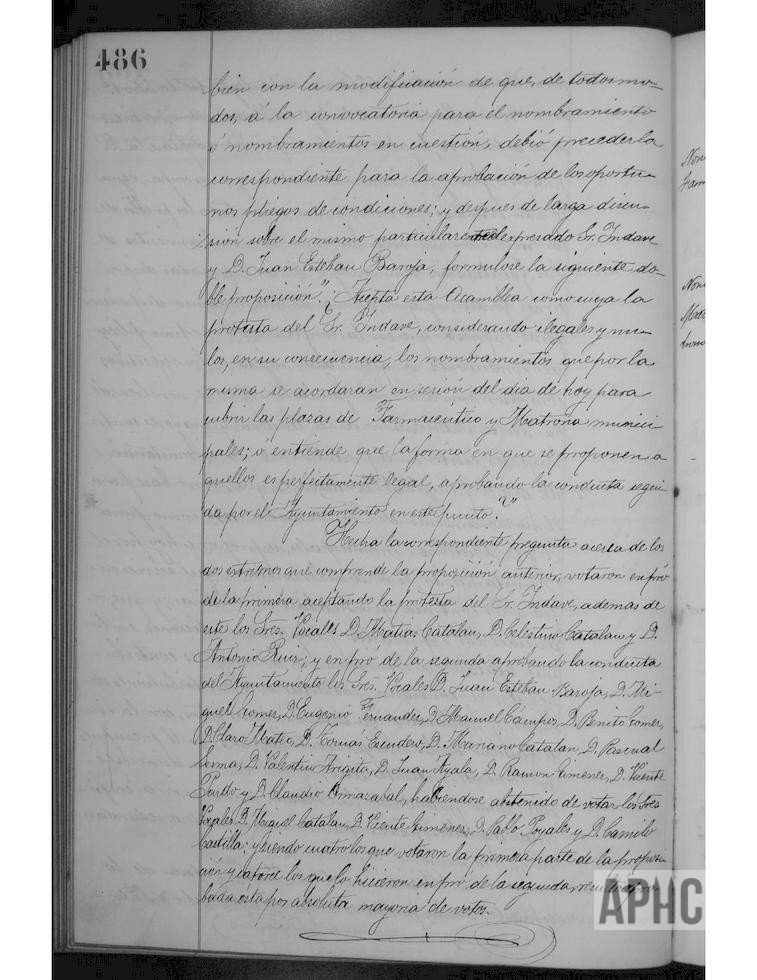 486
bien con la modificación de que, de todos mo-
dos, á la convocatoria para el nombramiento
ó nombramientos en cuestión, debió preceder la
correspondiente para la aprobación de los oportu-
nos pliegos de condiciones; y despues de larga discu-
sión sobre el mismo particular entre el expresado Sr. Indave
y D. Juan Esteban Baroja, formulose la siguiente do-
ble proposición "¿Acepta esta Asamblea como suya la
protesta del Sr. Indave, considerando ilegales y nu-
los, en su consecuencia, los nombramientos que por la
misma se acordaran en sesión del dia de hoy para
cubrir las plazas de Farmacéutico y Matrona munici
pales; ó entiende que la forma en que se proponen a
quellos es perfectamente legal, aprobando la conducta segui
da por el Ayuntamiento en este punto?"
Hecha la correspondiente pregunta acerca de los
dos extremos que comprende la proposición anterior, votaron en pró
de la primera aceptando la protesta del Sr. Indave, ademas de
este los Sres. Vocales D. Matias Catalan, D. Celestino Catalan y D.
Antonio Ruiz; y en pro de la segunda aprobando la conducta
del Ayuntamiento los Sres. Vocales D. Juan Esteban Baroja, D. Mi-
guel Gomez, D. Eugenio Fernandez, D. Manuel Campos, D. Benito Gomez,
D. Claro Mateo, D. Tomás Escudero, D. Mariano Catalan, D. Pascual
D. Valentin Arigita, D. Juan Ayala, D. Ramon Gimenez, D. Vicente
Pardo y D. Claudio Ormazabal, habiendose abstenido de votar los Sres
Vocales D. Miguel Catalan, D. Vicente Gimenez, D. Pablo Poyales y D. Camilo
Castilla; y siendo cuatro los que votaron la primera parte de la proposi-
ción y catorce los que lo hicieron en pró de la segunda,
bada ésta por absoluta mayoria de votos.
APHC